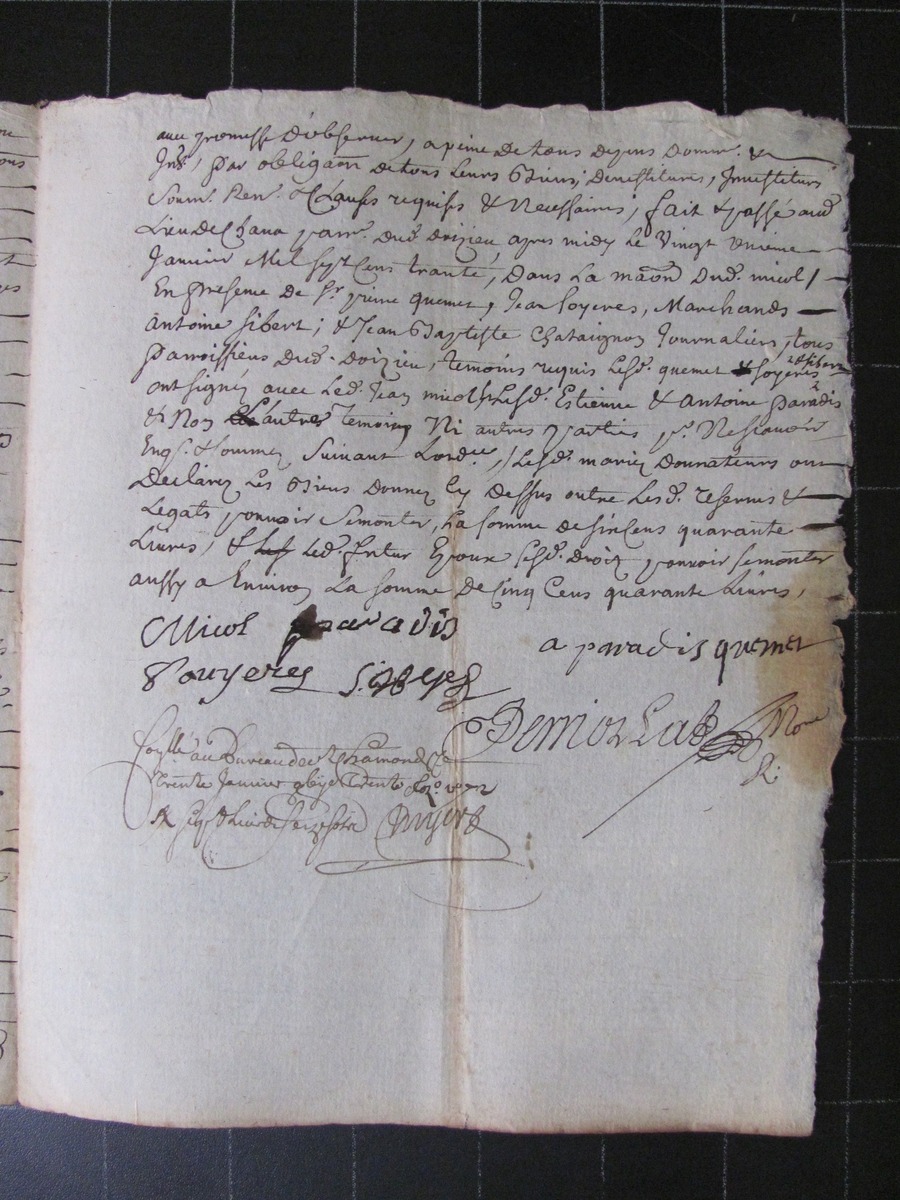 avec promesse d'observer, a peine de tous depens domm. &
Int., par obligaon de tous Leurs Biens, demestitures, Jnvestitures
Soum. Ren. & Clauses requises & Necessaires, fait & passé aud.
Lieu de Chana parr. dud. doizieu, apres midy le Vingt unieme
Janvier Mel sept Cens trante, Dans La maon Dud. micol /
En presence de Sr. pierre quemet, Jean foyeres, Marchands
Antoine fibert, & Jean Baptiste Chataignon Journaliers, tous
parroissiens dud. doizieu, temoins requis Lesd. quemet & foyeres & fibert
ont signéz avec Led. Jean micol / Lesd. Estienne & Antoine paradis
& Non autres temoins Ni autres parties pr. Ne Scavoir
Enqs. & sommez Suivant Lord.ce, / Lesd. mariez Donnateurs ont
Declarez Les Biens Donnez Cy dessus outre Lesd. reserves &
Legats pouvoir Semonter, La somme de six Cens quarante
Livres, & Led. futur Epoux sesd. Droitz pouvoir se monter
aussy a Environ La somme De Cinq Cens quarante Livres,
Micol paradis
a paradis quemet
fouyeres
au Bureau de St Chamond Le
trente Janvier trente